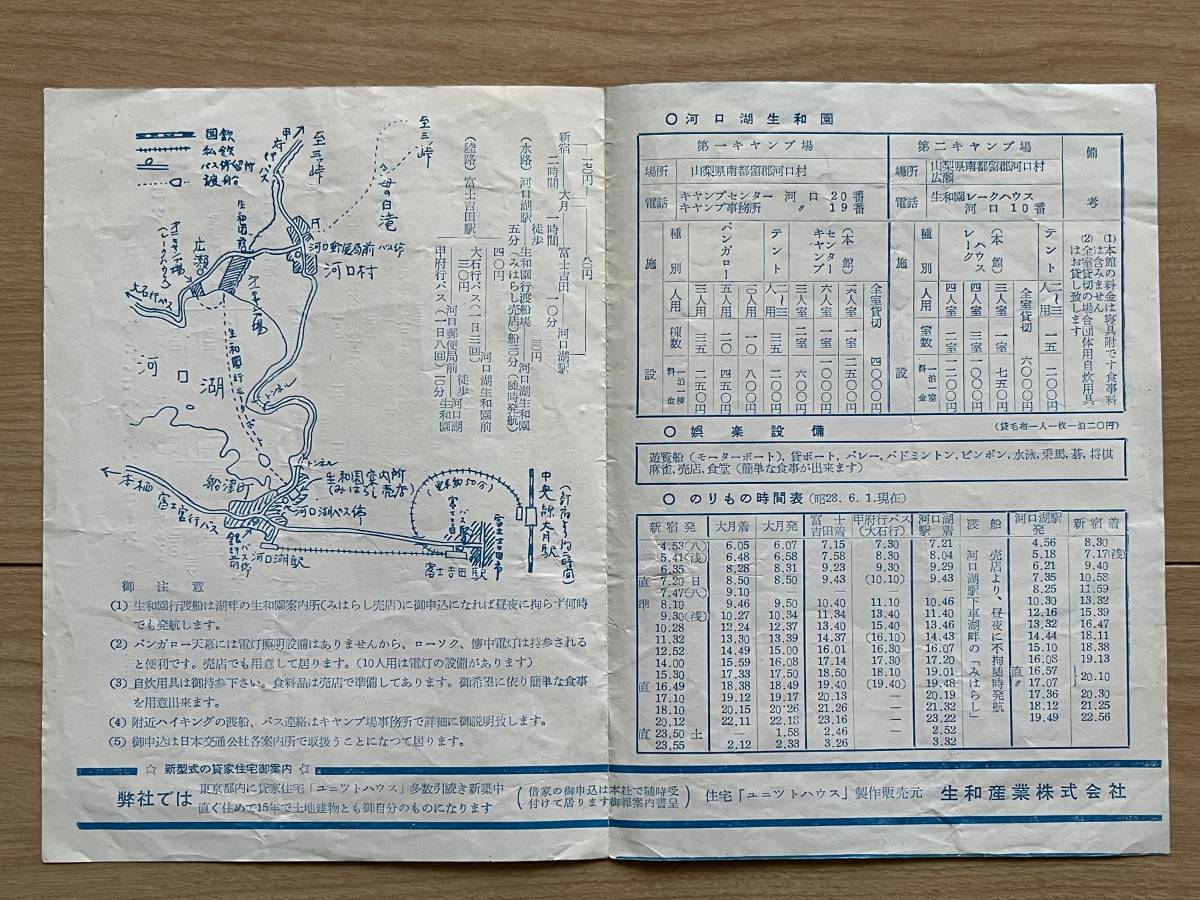 国鉄
私鉄
バス停留所
渡船
甲府行バス
至三ッ峠
至三ッ峠
母の白滝
生和園前
広瀬
河口郵便局前バス停
河口村
大石行バス
河口湖
トンネル
トンネル
生和園案内所
(みはらし売店)
船津町
河口湖バス停
河口湖駅
至本栖
富士吉田駅
富士吉田市
中央線大月駅
新宿
二時間
大月
一時間
富士吉田
一〇分
河口湖駅
(水路)河口湖駅
徒歩
五分
生和園行渡船場
(みはらし売店)
船
三〇円
河口湖生和園
(随時発航)
(陸路)富士吉田駅
四〇円
大石行バス(一日三回)
河口湖生和園前
三〇円
甲府行バス(一日八回)
河口郵便局前
徒歩
一〇分
河口湖生和園
御注意
(1) 生和園行渡船は湖畔の生和園案内所(みはらし売店)に御申込になれば昼夜に拘らず何時
でも発航します。
(2) バンガロー天幕には電灯照明設備はありませんから、ローソク、懐中電灯は持参される
と便利です。売店でも用意して居ります。(10人用は電灯の設備があります)
(3) 自炊用具は御持参下さい。食料品は売店で準備してあります。御希望に依り簡単な食事
を用意出来ます。
(4) 附近ハイキングの渡船、バス連絡はキャンプ場事務所で詳細に御説明致します。
(5) 御申込は日本交通公社各案内所で取扱うことになつて居ります。
○河口湖生和園
第一キャンプ場
第二キャンプ場
備考
場所 山梨県南都留郡河口村
場所 山梨県南都留郡河口村
広瀬
電話 キャンプセンター 河口20番
キャンプ事務所 〃 19番
電話 生和園レークハウス
河口10番
施設
種別 人用 棟数 料金 一泊一棟
バンガロー 三人用 三五 二五〇円
五人用 二〇 四五〇円
一〇人用 一〇 八〇〇円
テント 二〜三人用 三五 二〇〇円
キャンプセンター(本館) 三人用 二室 六〇〇円
六人用 一室 一〇〇〇円
一室 二五〇〇円
全室貸切 四〇〇〇円
施設
種別 人用 室数 料金 一泊一室
レークハウス(本館) 四人用 二室 一二〇〇円
四人用 三室 一〇〇〇円
三人用 一室 七五〇円
全室貸切 六〇〇〇円
テント 二〜三人用 一五 二〇〇円
(1)本館の料金は寝具附です食事料は含みません
(2)全室貸切の場合団体用自炊用具はお貸し致します
(貸毛布一人一枚一泊二〇円)
○ 娯楽設備
遊覧船(モーターボート), 貸ボート, バレー, バドミントン, ピンポン, 水泳, 乗馬, 碁, 将棋
麻雀, 売店, 食堂(簡単な食事が出来ます)
○ のりもの時間表(昭28.6.1.現在)
新宿発 大月着 大月発 富士吉田着 甲府行バス(大石行) 河口湖駅着 渡船 河口湖駅発 新宿着
4.53(八) 6.05 6.07 7.15 7.30 7.21 4.56 8.30
5.41(浅) 6.48 6.58 7.58 8.30 8.04 5.18 7.17(浅)
6.35 8.28 8.31 9.23 9.30 9.29 6.21 9.40
直 7.20日 8.50 8.50 9.43 (10.10) 9.43 7.35 10.58
7.47(八) 9.10 — — — — 8.25 11.59
準 8.10 9.46 9.50 10.40 11.10 10.46 10.30 13.32
9.30(浅) 10.27 10.34 11.34 13.40 11.40 12.16 15.39
10.28 12.24 12.37 13.40 15.40 13.46 13.32 16.47
11.32 13.30 13.39 14.37 (16.10) 14.43 14.44 18.11
12.52 14.49 15.00 16.01 16.30 16.07 15.10 18.38
14.00 15.59 16.08 17.14 17.30 17.20 16.08 19.13
15.30 17.33 17.50 18.50 18.10 19.01 直 16.57 20.10
直 16.49 18.38 18.49 19.40 (19.40) 19.48 〃 17.07
17.10 19.12 19.17 20.13 — 20.19 17.36 20.30
18.10 20.15 20.26 21.26 — 21.32 18.12 21.25
20.12 22.11 22.18 23.16 — 23.22 19.49 22.56
直 23.50土 — 1.58 2.46 — 2.52
23.55 2.12 2.33 3.26 3.32
河口湖駅下車湖畔の「みはらし」
売店より、昼夜に不拘随時発航
☆ 新型式の貸家住宅御案内 ☆
弊社では
東京都内に貸家住宅「ユニツトハウス」多数引続き新築中
直ぐ住めて15年で土地建物とも御自分のものになります
(借家の御申込は本社で随時受
付けて居ります御報案内書呈)
住宅「ユニツトハウス」製作販売元 生和産業株式会社